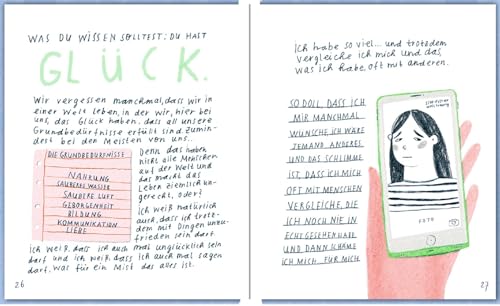 WAS DU WISSEN SOLLTEST: DU HAST
GLÜCK.
Wir vergessen manchmal, dass wir in
einer Welt leben, in der wir, hier bei
uns, das Glück haben, dass all unsere
Grundbedürfnisse erfüllt sind. Zumin-
dest bei den Meisten von uns.
DIE GRUNDBEDÜRFNISSE
NAHRUNG
SAUBERES WASSER
SAUBERE LUFT
GEBORGENHEIT
BILDUNG
KOMMUNIKATION
LIEBE
Denn das haben
nicht alle Menschen
auf der Welt und
das macht das
Leben ziemlich un-
gerecht, oder?
Ich weiß natürlich
auch, dass ich trotz-
dem mit Dingen unzu-
frieden sein darf.
Ich weiß, dass ich auch mal unglücklich sein
darf und ich weiß, dass ich auch mal sagen
darf, was für ein Mist das alles ist.
26
Ich habe so viel... und trotzdem
vergleiche ich mich und das,
was ich habe, oft mit anderen.
SO DOLL, DASS ICH
MIR MANCHMAL
WÜNSCHE, ICH WÄRE
JEMAND ANDERES.
UND DAS SCHLIMME
IST, DASS ICH MICH
OFT MIT MENSCHEN
VERGLEICHE, DIE
ICH NOCH NIE IN
ECHT GESEHEN HABE
UND DANN SCHÄME
ICH MICH. FÜR MICH.
FOTO
27